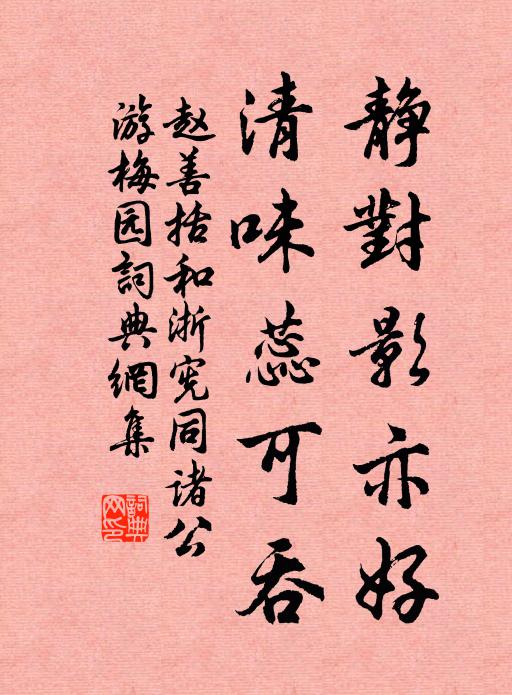 静對影亦好
清味蕊可吞
赵善括和浙宪同诸公
游梅园詞典網集
詞典網印